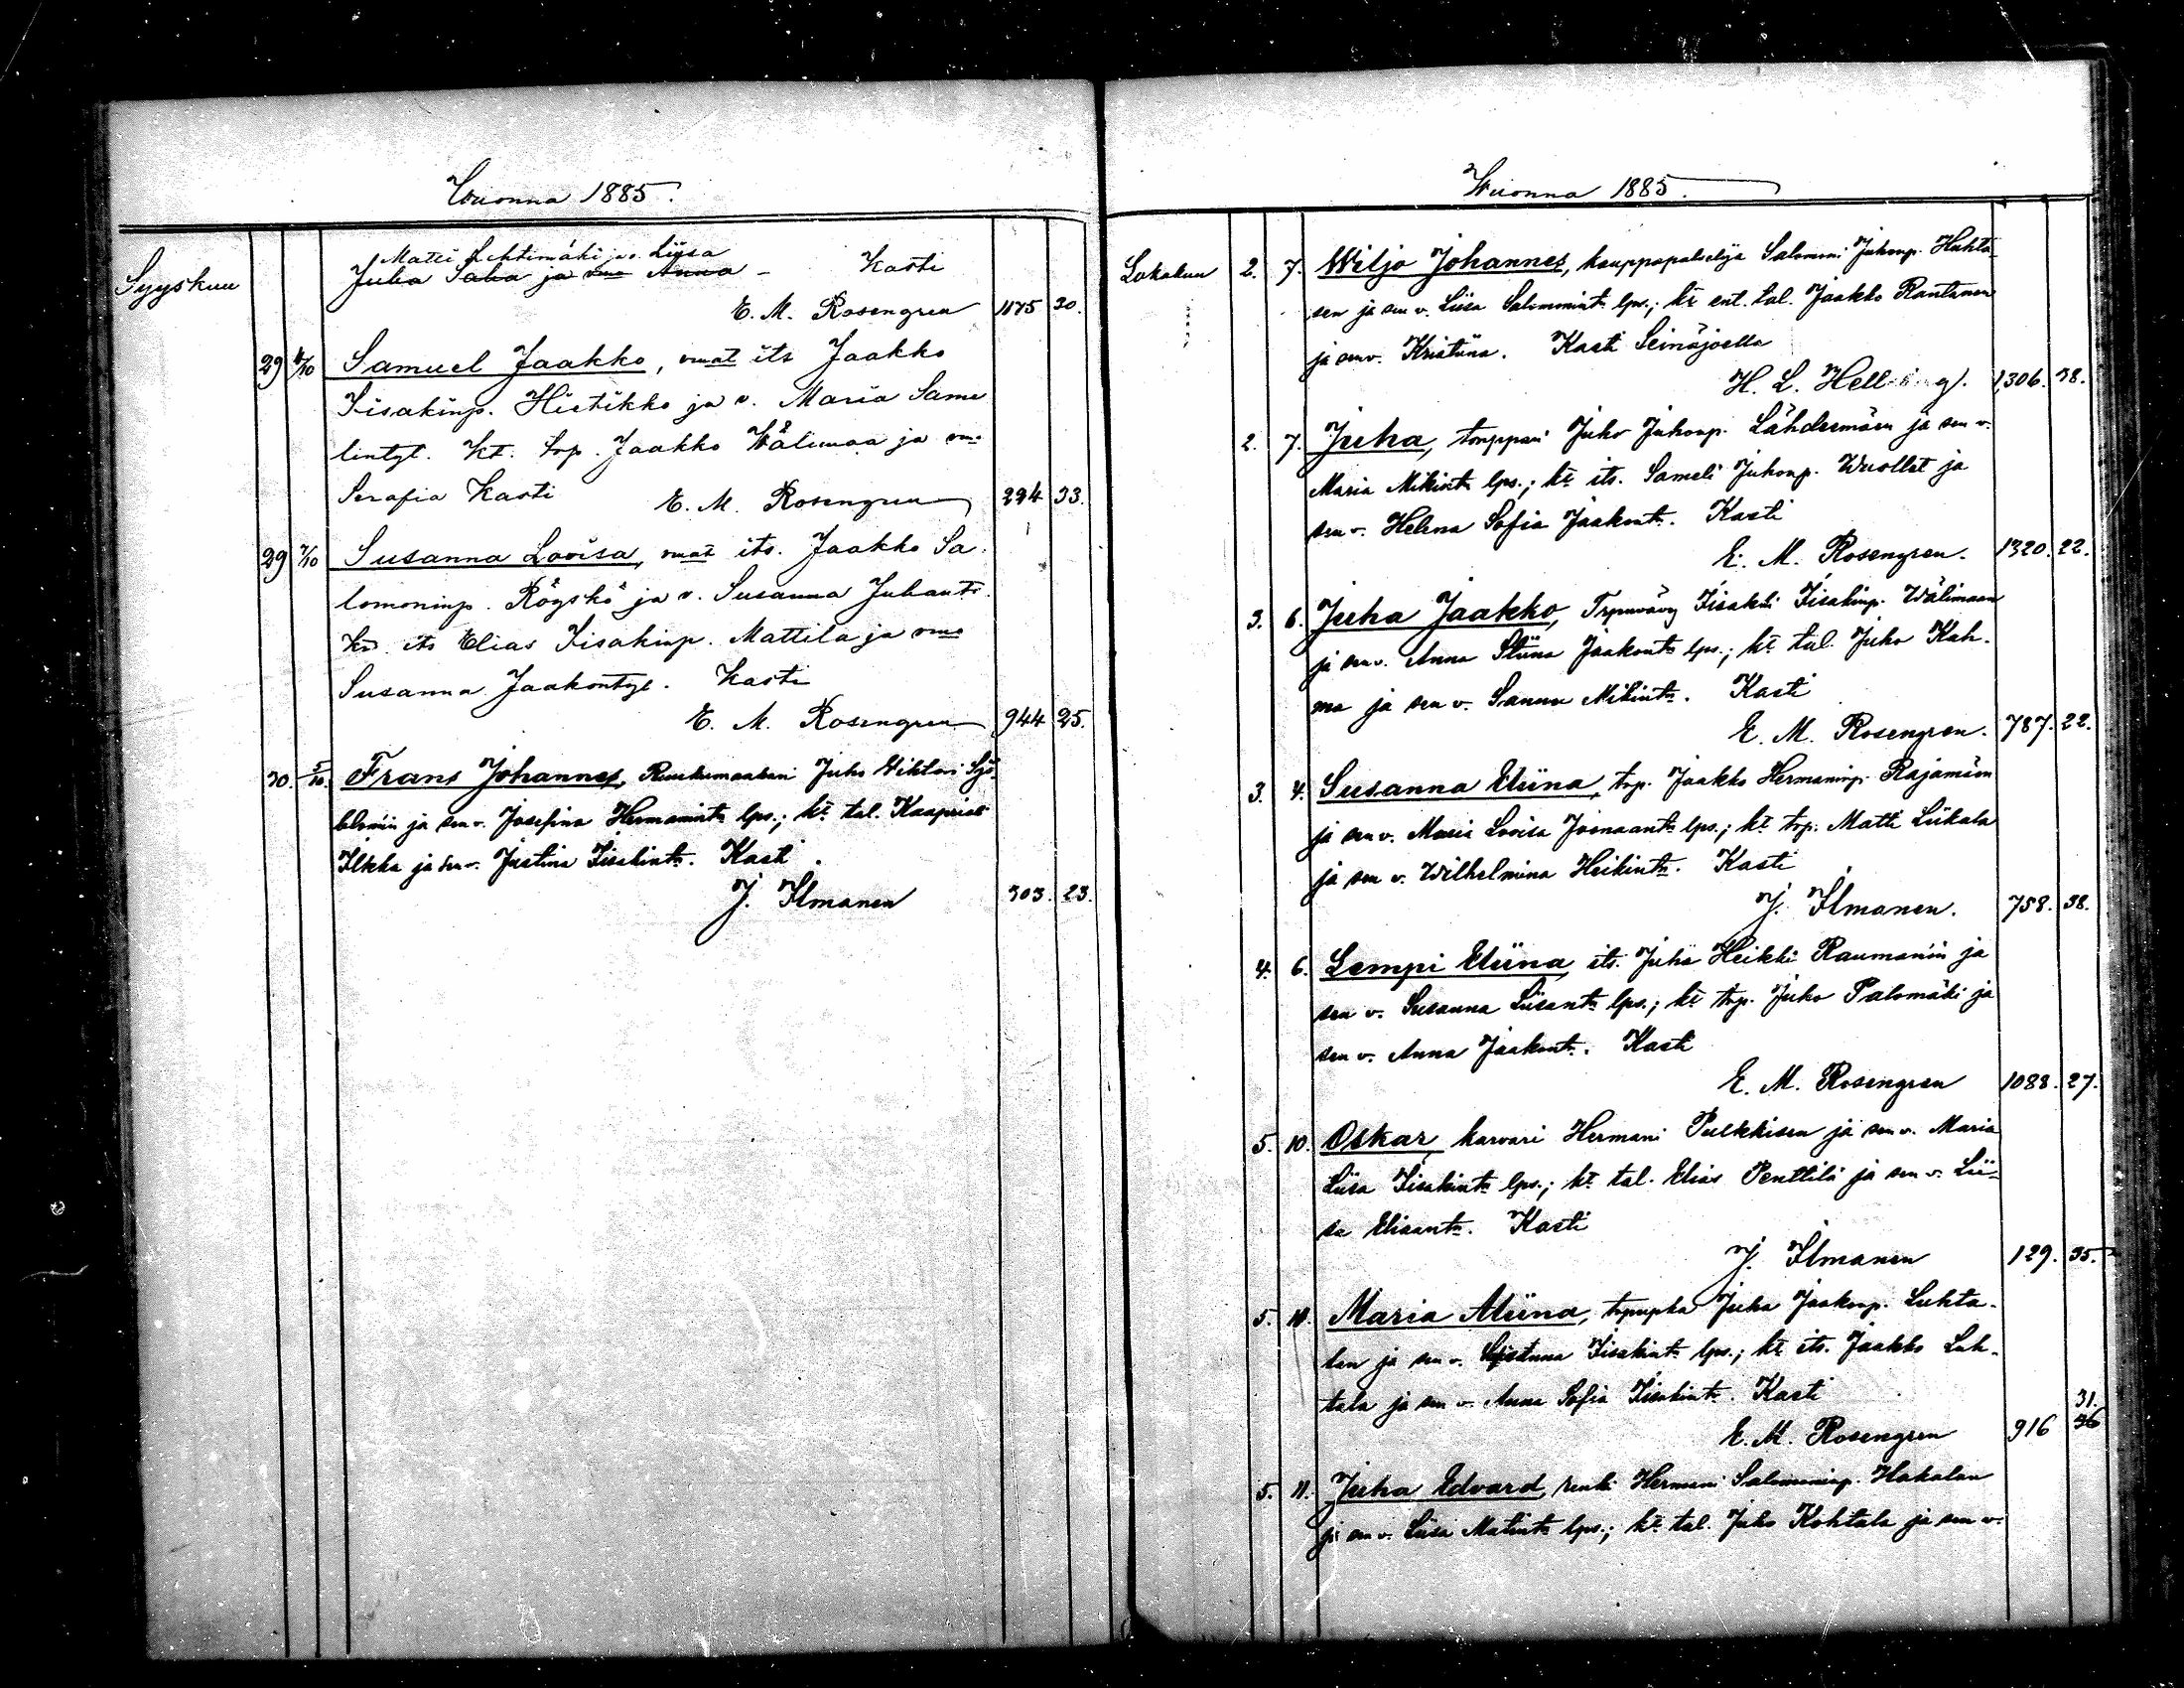 Wuonna 1885.
Syyskuu
Matti Lehtimäki ja v. Liisa
Juha Saha ja vmo Anna - Kasti
E. M. Rosengren 1175 30.
29 4/10 Samuel Jaakko, vmat its Jaakko
Iisakinp. Hietikko ja v. Maria Same
lintyt. Kt. torp. Jaakko Wälimaa ja vmo
Serafia Kasti E. M. Rosengren 224 33.
29 7/10 Susanna Lovisa, vmat its. Jaakko Sa-
lomoninp. Röyskö ja v. Susanna Juhantr.
Kt. its Elias Iisakinp. Mattila ja vmo
Susanna Jaakontyt. Kasti
E. M. Rosengren 944 25.
30. 5/10. Frans Johannes, Ruukumaakari Juho Viktori Sjö-
blomin ja sen v. Josefina Hermanintr lps.; kt tal. Kaaprieli
Ilkka ja sen v. Justina Iisakintr. Kasti.
J. Ilmanen 303. 23.
Wuonna 1885.
Lokakuu 2. 7. Wiljo Johannes, kauppapalvelija Salomoni Juhonp. Huhta-
sen ja sen v. Liisa Salomonintr lps.; kt ent. tal. Jaakko Rantanen
ja sen v. Kristiina. Kasti Seinäjoella
H. L. 1,306. 38.
2. 7. Juha, torppari Juho Juhonp. Lähdesmäen ja sen v.
Maria Mikintr lps.; kt its. Sameli Juhonp. Wuollet ja
sen v. Helena Sofia Jaakontr. Kasti
E. M. Rosengren. 1320. 22.
3. 6. Juha Jaakko, Iisakki Iisakinp. Wälimaan
ja sen v. Anna Stiina Jaakontr lps.; kt tal. Juho Kah-
ma ja sen v. Sanna Mikintr. Kasti
E. M. Rosengren. 787. 22.
3. 4. Susanna Eliina, trp. Jaakko Hermaninp. Rajamäen
ja sen v. Maria Lovisa Joonaantr lps.; kt trp. Matti Liikala
ja sen v. Wilhelmina Heikintr. Kasti
J. Ilmanen. 758. 38.
4. 6. Lempi Eliina, its. Juha Heikki Raumanin ja
sen v. Susanna Liisantr lps.; kt trp. Juho Palomäki ja
sen v. Anna Jaakontr. Kasti
E. M. Rosengren 1088. 27.
5. 10. Oskar, karvari Hermani Pulkkisen ja sen v. Maria
Liisa Iisakintr lps.; kt tal. Elias Penttilä ja sen v. Lii-
sa Elisantr. Kasti
J. Ilmanen 129. 35.
5. 11. Maria Aliina, trpnpka Juha Jaakonp. Luhta-
lan ja sen v. Iisakintr lps.; kt its. Jaakko Luh-
tala ja sen v. Anna Sofia Iisakintr. Kasti
31.
E. M. Rosengren 916 36
5. 11. Juha Edvard, renki Hermani Salomoninp. Hakalan
ja sen v. Liisa Matintr lps.; kt tal. Juho Kohtala ja sen v.